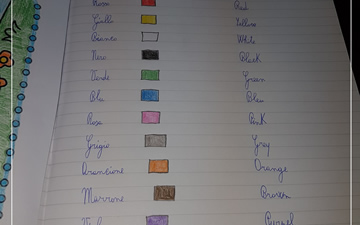 Rosso Red
Giallo Yellow
Bianco White
Nero Black
Verde Green
Blu Blew
Rosa Pink
Grigio Grey
Arancione Orange
Marrone Brown
Viola Purpel